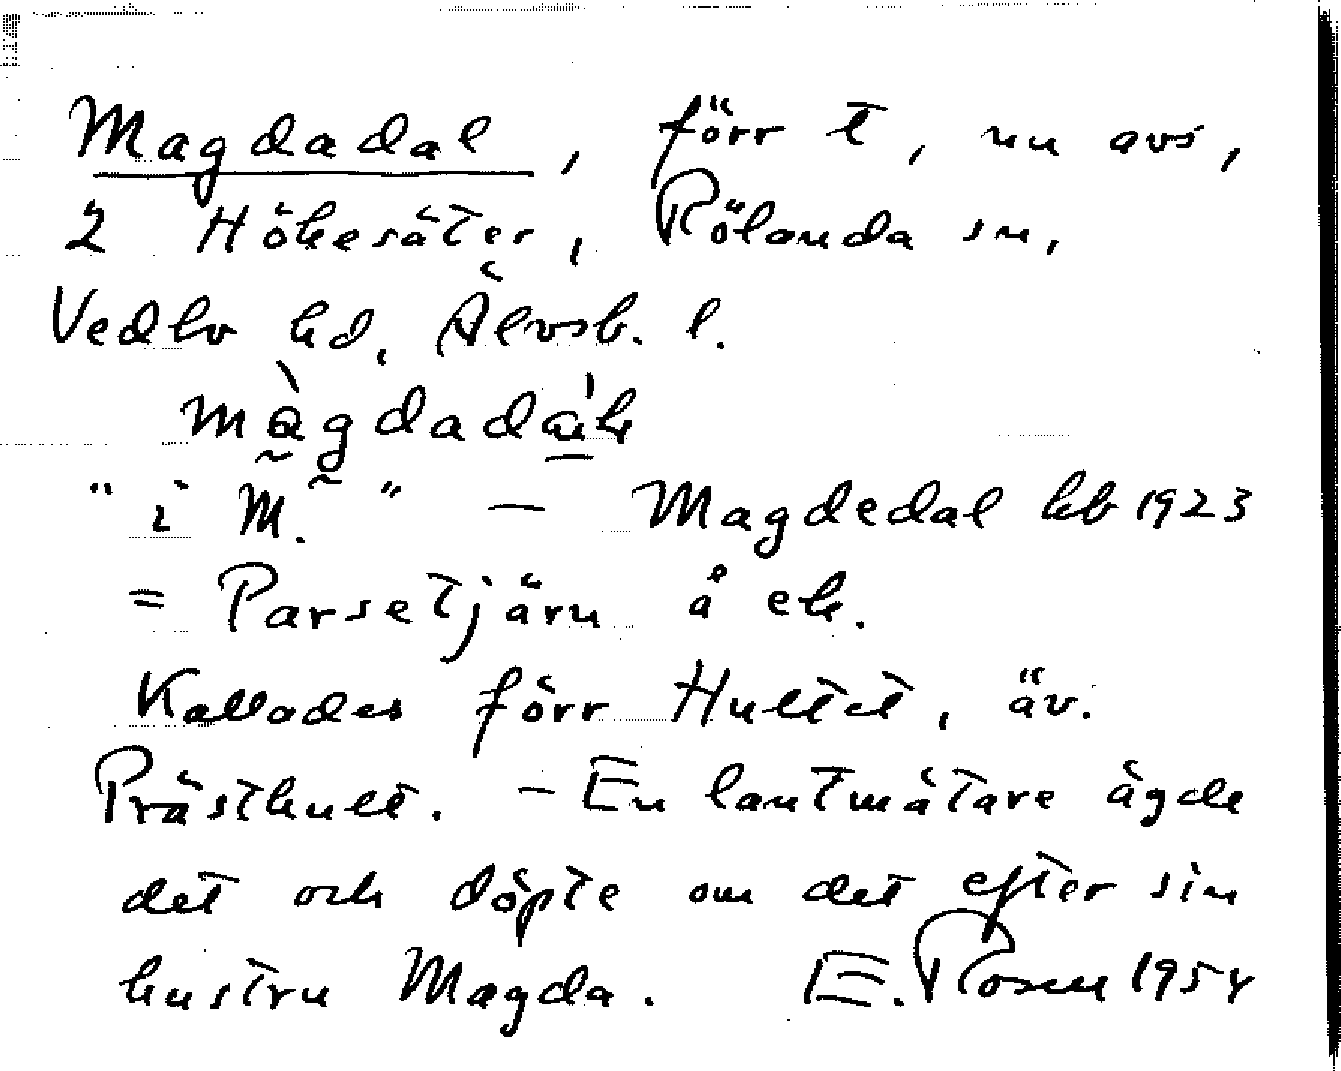 Magdadal, förr t, nu avs,
2 Hökesäter, Rölanda sn,
Vedbo hd, Älvsb. l.
màgdadáɩ̵
"i M." — Magdedal kb 1923
= Parsetjärn å ek.
Kallades förr Hultet, äv.
Prästhult. - En lantmätare ägde
det och döpte om det efter sin
hustru Magda. E. Rosell 1954